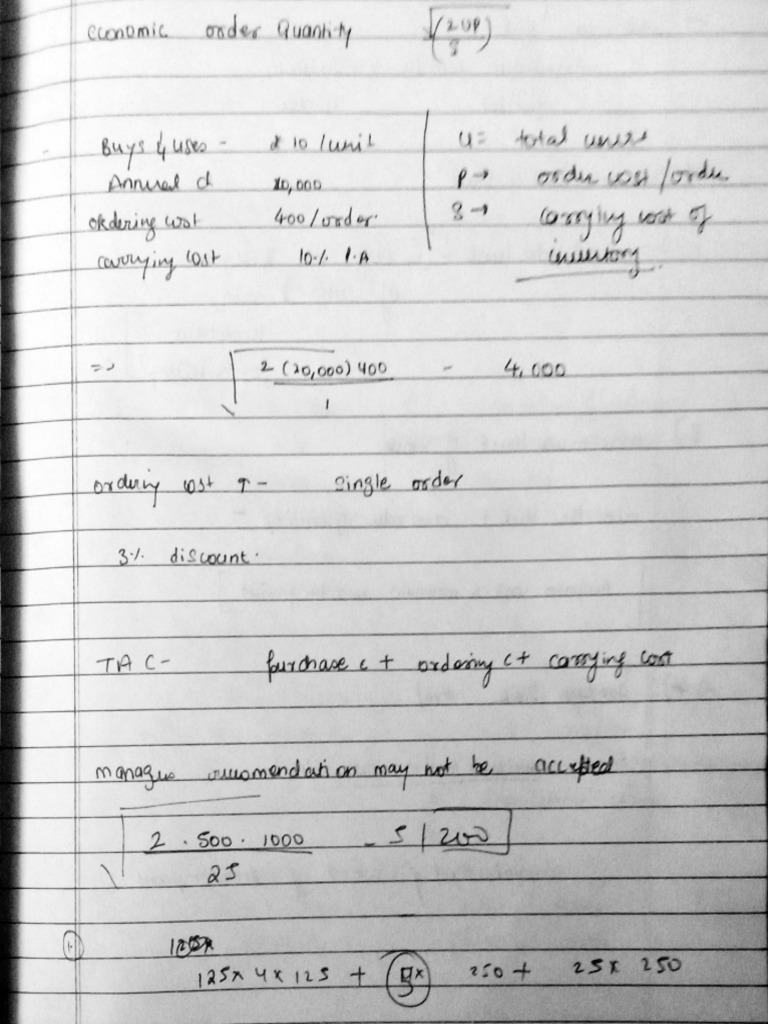 economic order Quantity √(2UP/S)
Buys & uses - ₹ 10 /unit
Annual d 20,000
ordering cost 400/order.
carrying cost 10% P.A
U = total
P → order cost /order
S → carrying cost of
inventory
=> √ 2 (20,000) 400 / 1 - 4,000
ordering cost ↑ - single order
3% discount.
TAC- purchase c + ordering c + carrying cost
may not be accepted
√ 2 . 500 . 1000 / 25 - 200
125 x 4 x 125 + 5x 250 + 25 x 250